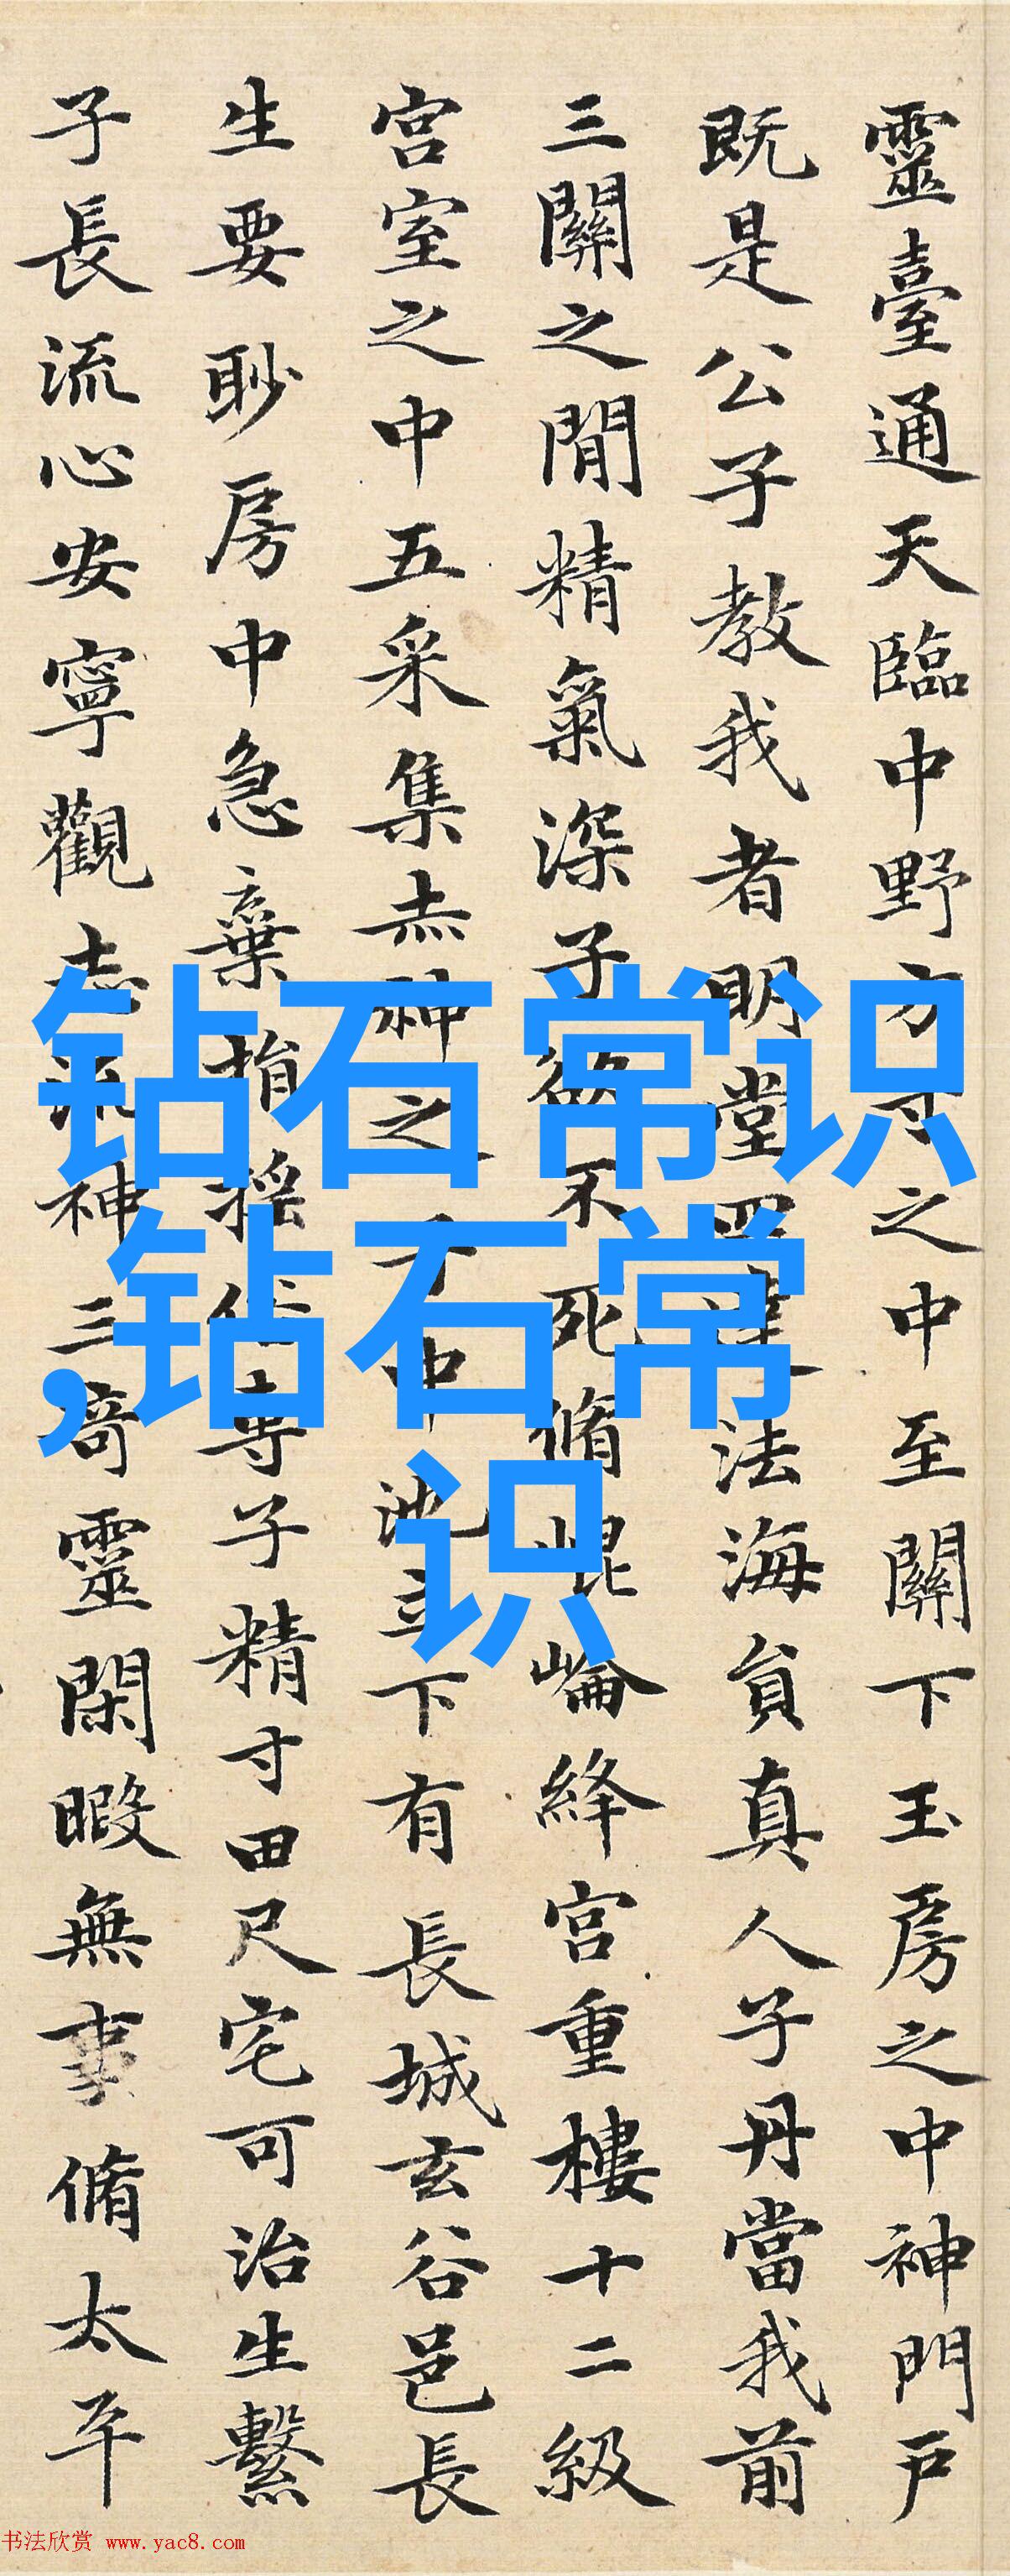 靈臺通天臨中野方寸之中至關下玉房之中神門戶
既是公子教我者明堂四達法海員真人子丹當我前
三關之間精氣深子欲不死脩崐崘絳宮重樓十二級
宮室之中五采集赤神之子中池立下有長城玄谷邑長
生要眇房中急棄捐搖俗專子精寸田尺宅可治生繫
子長流心安寧觀志流神三奇靈閑暇無事脩太平
钻石常识
,钻石常
识
书法欣赏 www.yac8.com